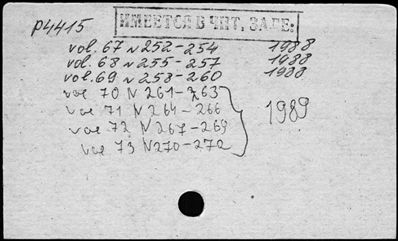 P4415
ИМЕЕТСЯ В ЧИТ. ЗАЛЕ.
vol. 67 N 252-254 1988
vol. 68 N 255-257 1988
vol. 69 N 258-260 1988
vol 70 N 261-263
vol 71 N 264-266 1989
vol 72 N 267-269
vol 73 N 270-272